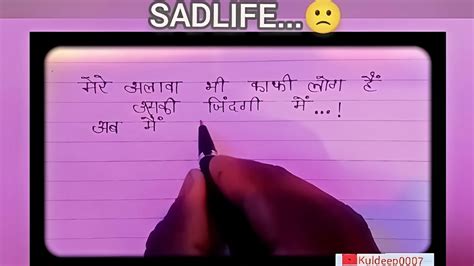 SADLIFE...🙁
मेरे अलावा भी काफी लोग हैं
उसकी जिंदगी में...!
अब मैं
Kuldeep0007